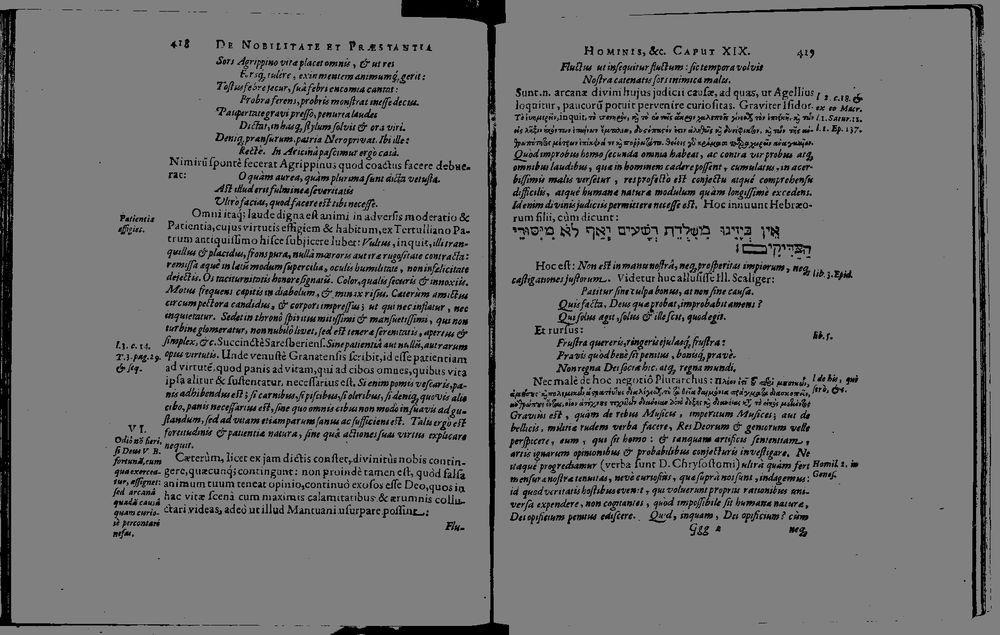 418 DE NOBILITATE ET PRÆSTANTIA
Sors Agrippino vitæ placet omnis, & ut res
tulere, ex in mentem animumq́, gerit:
Tostus febre jecur, suæ febri encomia cantat:
Probra ferens, probris monstrat inesse decus.
Paupertate gravi presso, penuria laudes
Dictat, in hasq́, stylum solvit & ora viri.
Deniq́, pransurum. patria Nero privat. Ibi ille:
Recte. In Aricinâ pascimur ergo casâ.
Nimirū spontè fecerat Agrippinus quod coactus facere debue-
rat: O quàm aurea, quàm plurima sunt dicta vetusta.
Ast illud erit fulmineæ severitatis
Ultrò facias, quod facere est tibi necesse.
Omni itaq; laude digna est animi in adversis moderatio &
Patientia, cujus virtutis effigiem & habitum, ex Tertulliano Pa-
trum antiquissimo hîsce subjicere lubet: Vultus, inquit, illi tran-
quillus & placidus, frons pura, nullâ mœroris aut iræ rugositate contracta:
remissa æquè in lætū modum supercilia, oculis humilitate, non infelicitate
dejectis. Os taciturnitatis honore signatū. Color, qualis securis & innoxiis.
Motus frequens capitis in diabolum, & minax risus. Cæterùm amictus
circum pectora candidus, & corpori impressus; ut qui nec inflatur, nec
inquietatur. Sedet in throno spiritus mitissimi & mansuetissimi, qui non
turbine glomeratur, non nubilo livet, sed est teneræ serenitatis, apertus &
simplex, &c. Succinctè Saresberiens. Sine patientiâ aut nullū, aut rarum
opus virtutis. Unde venustè Granatensis scribit, id esse patientiam
ad virtutē. quod panis ad vitam, qui ad cibos omnes, quibus vita
ipsa alitur & sustentatur, necessarius est. Si enim pomis vescaris, pa-
nis adhibendus est; si carnibus, si piscibus, si oleribus, si deniq́, quovis alio
cibo, panis necessarius est, sine quo omnis cibus non modo insuavis ad gu-
standum, sed ad vitam etiam parum sanus ac sufficiens est. Talis ergo est
fortitudinis & patientiæ natura, sine quâ actiones suas virtus explicare
nequit.
Cæterùm, licet ex jam dictis constet, divinitùs nobis contin-
gere, quæcunq; contingunt: non proindè tamen est, quòd falsa
animum tuum teneat opinio, continuò exosos esse Deo, quos in
hac vitæ scenâ cum maximis calamitatibus & ærumnis collu-
ctari videas, adeò ut illud Mantuani usurpare possint:
Flu-
Patientiæ
effigies.
l.3. c.14.
T.3. pag.29.
& seq.
VI.
Odiō nō fieri,
si Deus V. B.
fortunā, cum
qua exercea-
tur, assignet:
sed arcanâ
quadā causâ
quam curio-
sè percontari
nefas.
HOMINIS, &c. CAPUT XIX. 419
Fluctus ut insequitur fluctum: sic tempora volvit
Nostra catenatis sors inimica malis.
Sunt.n. arcanæ divini hujus judicii causæ, ad quas, ut Agellius
loquitur, paucorū potuit pervenire curiositas. Graviter Isidor.
Quod improbus homo secunda omnia habeat, ac contra vir probus atq́,
omnibus laudibus, quæ in hominem cadere possent, cumulatus, in acer-
bissimis malis versetur, res profectò est conjectu atque comprehensu
difficilis, atque humanæ naturæ modulum quàm longissimè excedens.
Id enim divinis judiciis permittere necesse est. Hoc innuunt Hebræo-
rum filii, cùm dicunt:
אין בידינו משלות רשעים ואף לא מיסורי
הצדיקים:
Hoc est: Non est in manu nostrâ, neq́, prosperitas impiorum, neq́,
castigationes justorum. Videtur huc allusisse Ill. Scaliger:
Patitur sine culpa bonus, at non sine causa.
Quis facta, Deus quæ probat, improbabit amens?
Qui solus agit, solus & ille scit, quod egit.
Et rursus:
Frustra quereris, ringeris ejulaq́, frustra:
Pravis quod benè sit penitus, bonisq́, pravè.
Non regna Dei sōcra hic. atq́, regna mundi.
Nec malè de hoc negotiō Plutarchus:
Gravius est, quàm de rebus Musicis, imperitum Musices; aut de
bellicis, militiæ rudem verba facere, Res Deorum & geniorum velle
perspicere, eum, qui sit homo: & tanquam artificis sententiam,
artis ignarum opinionibus & probabilibus conjecturis investigare. Ne
itaque progrediamur (verba sunt D. Chrysostomi) ultrà quàm fert
mensura nostræ tenuitas, nevè curiosiùs, quæ supra nos sunt, indagemus:
id quod veritatis hostibus evenit, qui voluerunt propriis rationibus uni-
versa expendere, non cogitantes, quòd impossibile sit humanæ naturæ,
Dei opificium penitùs ediscere. Quid, inquam, Dei opificium? cùm
Ggg 2 neq́,
l. 2. c.18. &
ex eo Macr.
l.1. Satur.11.
l.1. Ep. 137.
lib. 3. Epid.
lib.5.
l de his, qui
serò, &c.
Homil. 2. in
Genes.